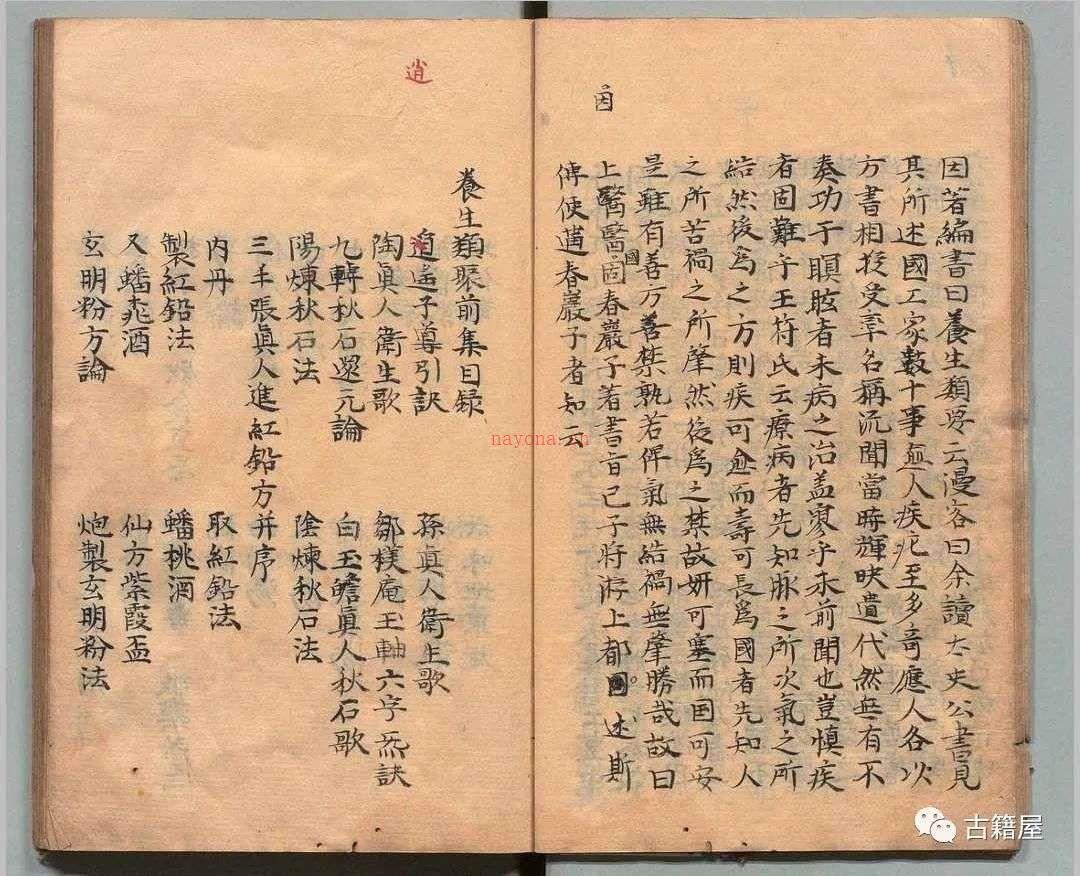 因
因著編書曰養生類要云漫客曰余讀太史公書見
其所述國工家數十事愈人疾疕至多奇應人各以
方書相授受率名稱流聞當時輝映遺代然無有不
奏功于瞑眩者未病之治盖寥乎未前聞也豈慎疾
者固難乎王符氏云療病者先知脉之所次氣之所
結然後爲之方則疾可愈而壽可長爲國者先知人
之所苦禍之所肇然後爲之禁故姸可塞而国可安
是雖有善方善禁孰若俾氣無結禍無肇勝哉故曰
上醫醫國春巖子若書旨已予将游上都 述斯
傳使邁春巖子者知云
逍
養生類聚前集目録
逍遥子導引訣 孫眞人衛生歌
陶眞人衛生歌 鄒樸庵玉軸六字炁訣
九轉秋石還元論 白玉蟾眞人秋石歌
陽煉秋石法 陰煉秋石法
三丰張眞人進紅鉛方并序
内丹 取紅鉛法
製紅鉛法 蟠桃酒
又蟠桃酒 仙方紫霞盃
玄明粉方論 炮製玄明粉法
nayona.cn
古籍屋